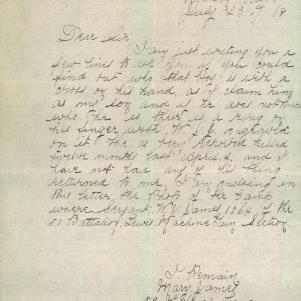 July 23 / 7 / 18
Dear Sir
I am just writing you a
few lines to ask you if you could
find out who that boy is with a
cross on his hand, as I claim him
as my son and if he does not know
who he is there is a ring on
his finger with W. J. engraved
on it. He as been killed
twelve months last April, and I
have not had any of his things
returned to me. I am enclosing in
this letter the photo of the Camp
where Sergant W J James 1864 of the
51 Battalion, Lewis Machine Gun Section.
I Remain
Mary James